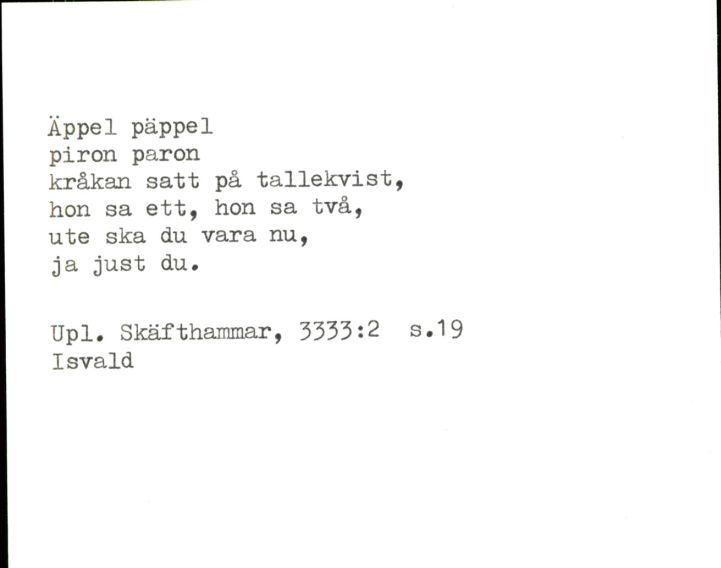 Äppel päppel
piron paron
kråkan satt på tallekvist,
hon sa ett, hon sa två,
ute ska du vara nu,
ja just du.
Upl. Skäfthammar, 3333:2 s.19
Isvald